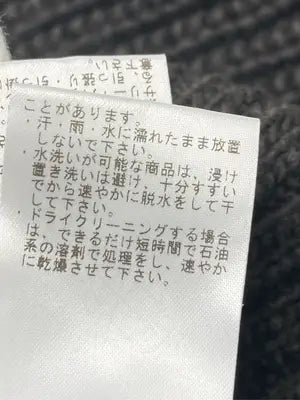 ことがあります。
・汗・雨・水に濡れたまま放置
しないで下さい。
・水洗いが可能な商品は、浸け
置き洗いは避け、十分すすい
でから速やかに脱水をして干
して下さい。
・ドライクリーニングする場合
は、できるだけ短時間で石油
系の溶剤で処理をし、速やか
に乾燥させて下さい。